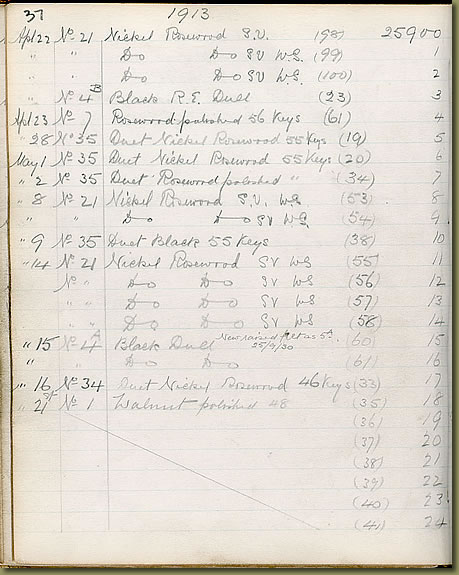 37 1913
Apl 22 No 21 Nickel Rosewood S.V. (98) 25900
" " Do Do SV W.S. (99) 1
" " Do Do SV W.S. (100) 2
No 4B Black R.E. Dull (23) 3
Apl 23 No 7 Rosewood polished 56 Keys (61) 4
" 28 No 35 Duet Nickel Rosewood 55 Keys (19) 5
May 1 No 35 Duet Nickel Rosewood 55 Keys (20) 6
" 2 No 35 Duet Rosewood polished " (34) 7
" 8 No 21 Nickel Rosewood S.V. W.S (53) 8
" " Do Do SV W.S. (54) 9
" 9 No 35 Duet Black 55 Keys (38) 10
" 14 No 21 Nickel Rosewood SV WS (55) 11
No " Do Do SV WS (56) 12
" " Do Do SV WS (57) 13
" " Do Do SV WS (58) 14
" 15 No 4A Black Dull New raised 25/9/30 (60) 15
" " Do Do (61) 16
" 16 No 34 Duet Nickel Rosewood 46 Keys (33) 17
" 21st No 1 Walnut polished 48 (35) 18
(36) 19
(37) 20
(38) 21
(39) 22
(40) 23
(41) 24